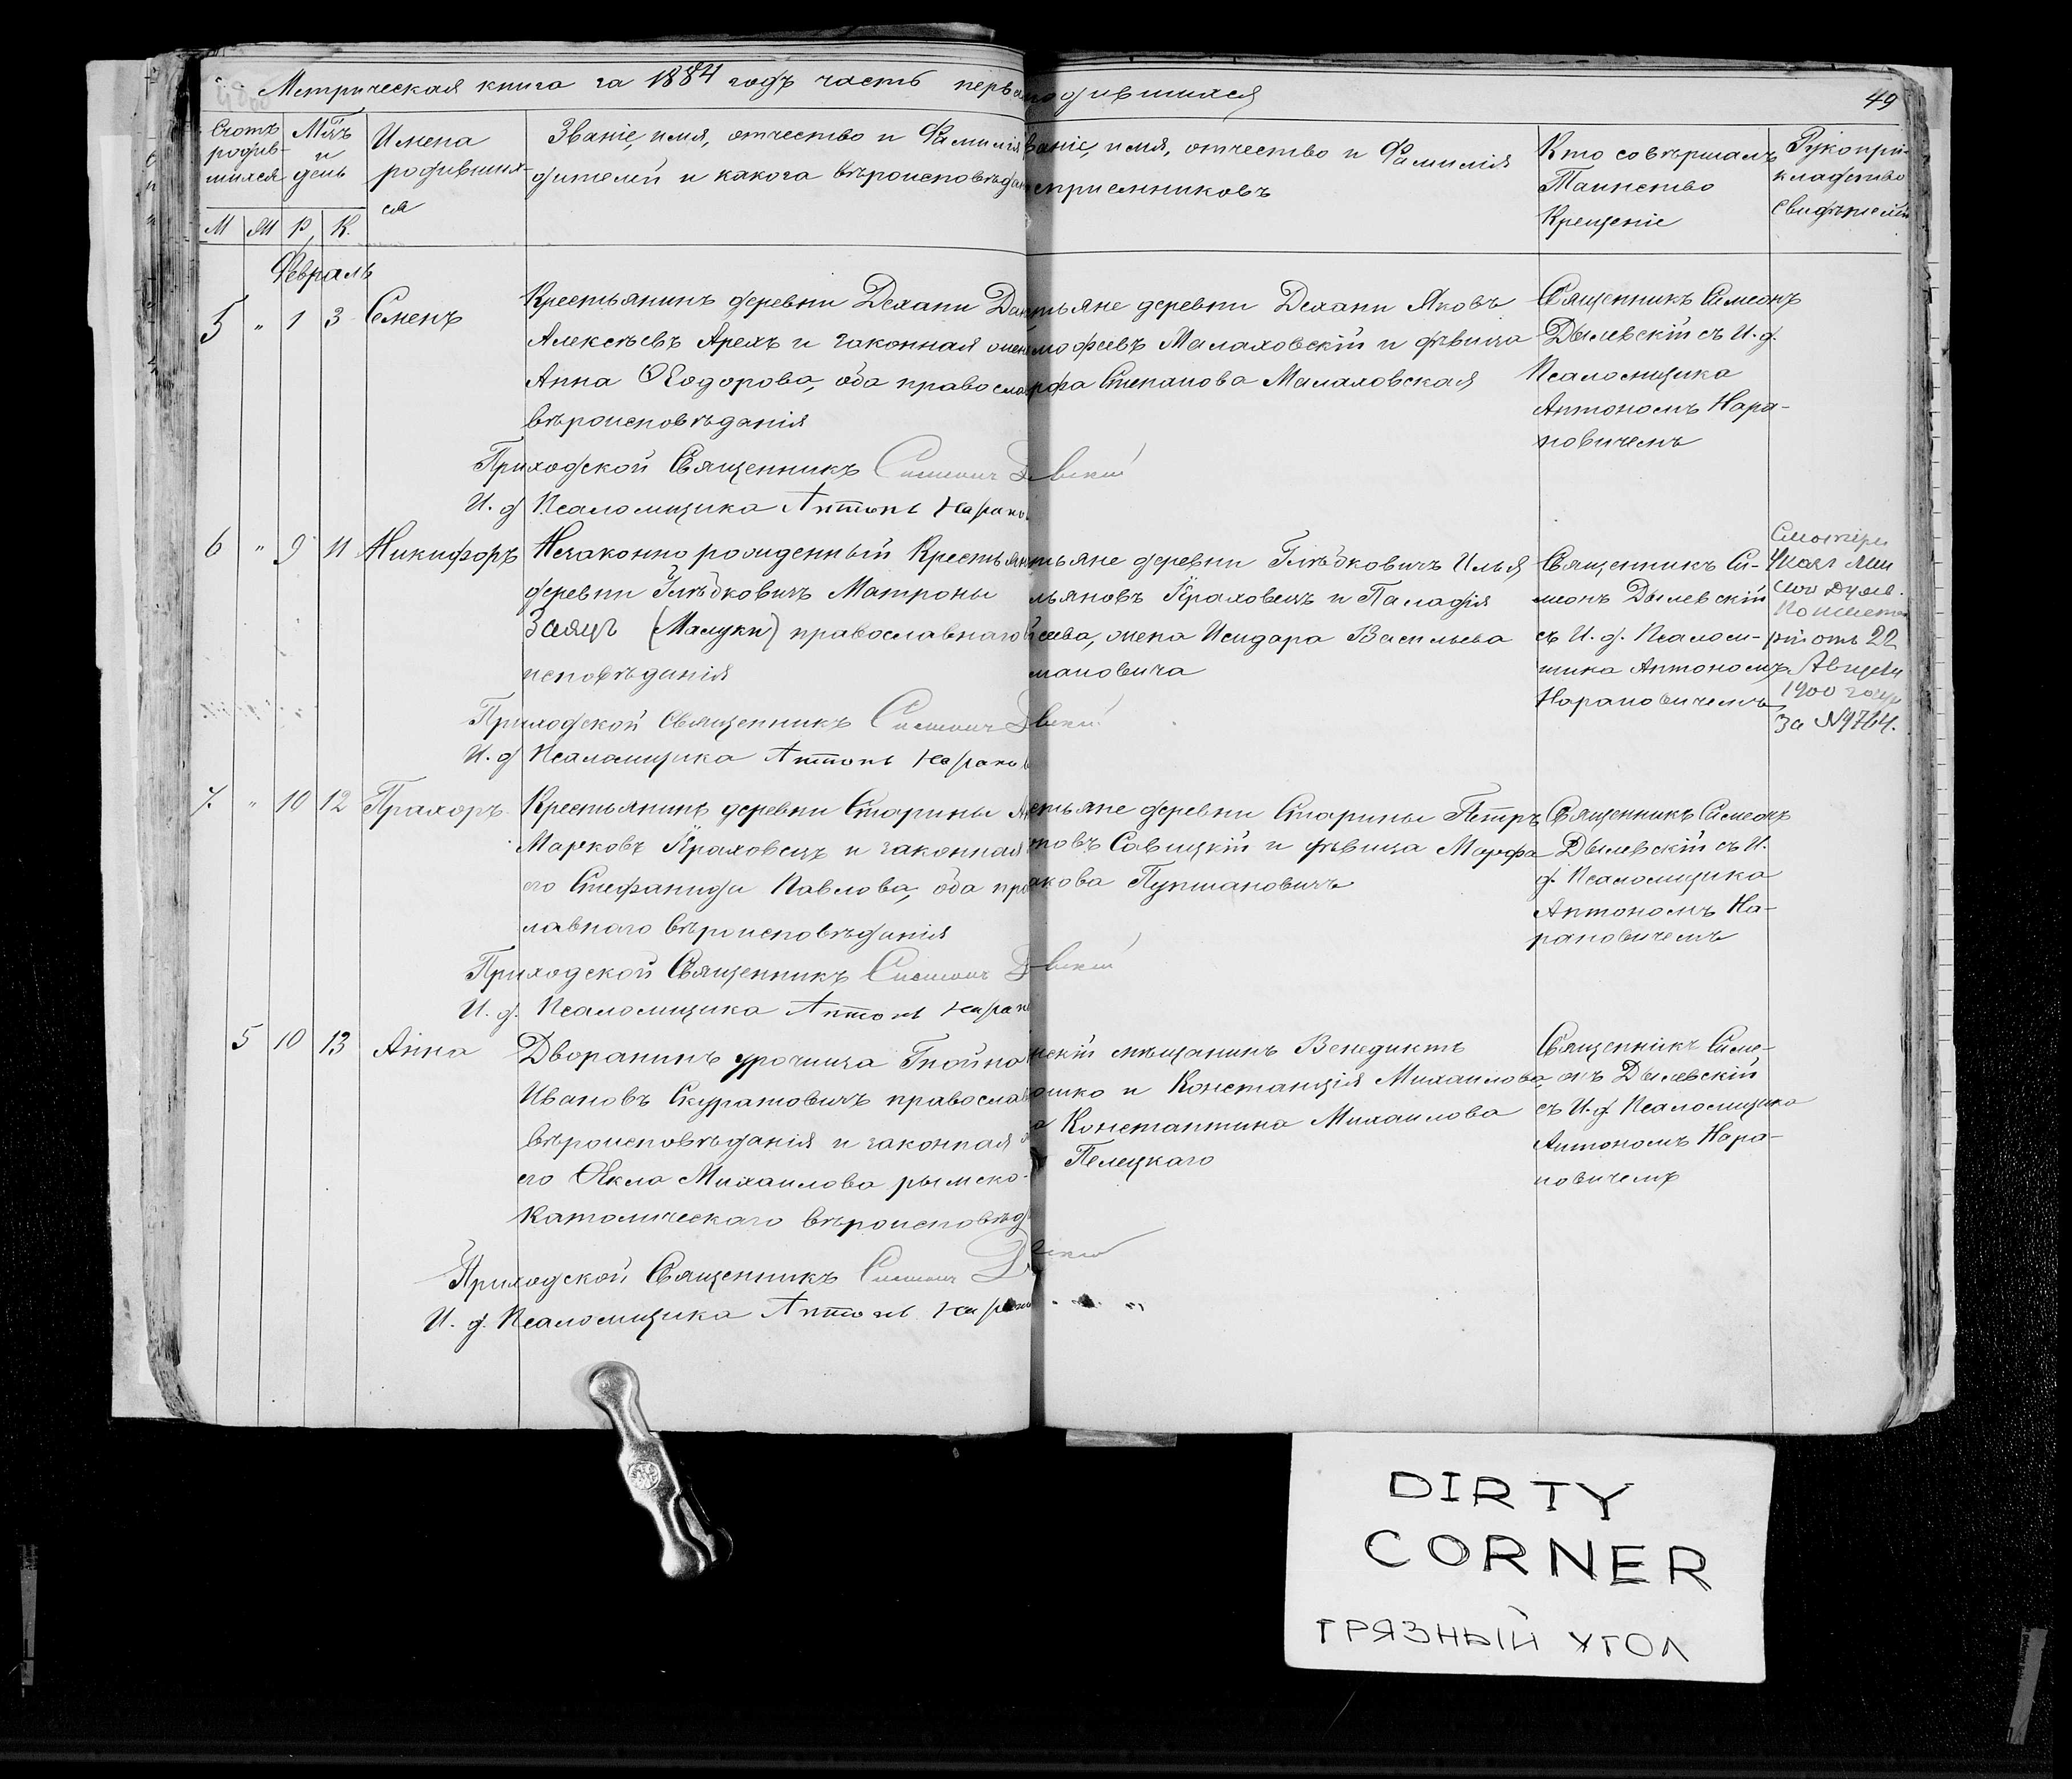 Метрическая книга за 1884 годъ часть перва
одившихся
49
Счотъ родив-шихся
Мѣ҃цъ и день
Имена родивших-ся
Званіе, имя, отчество и Фамилія
дителей и какога вѣроисповѣдан
Званіе, имя, отчество и Фамилія
спріемниковъ
Кто совершалъ
Таинство
Крещеніе
Рукопри-
кладство
Свидѣтелей
М Ж Р К.
Февраль
5 " 1 3 Семенъ
Крестьянинъ деревни Дехани
Алексѣевъ Арехъ и законная жена
Анна Ѳеодорова, оба правосла
вѣроисповѣданія
тьяне деревни Дехани Яковъ
мофеевъ Малаховскій и дѣвица
рфа Степанова Малаховская
Священникъ Симеонъ
Дылевскій съ И. д.
Псаломщика
Антономъ Нара-
новичемъ
Приходской Священникъ Симеонъ Д вскій
И. д Псаломщика Антонъ Нарано
6 " 9 11 Никифоръ
Незаконно рожденный Крестьян
деревни Глѣбковичъ Матроны
Заяцъ (Мацуки) православнаго
исповѣданія
тьяне деревни Глѣбковичъ Илья
льяновъ Краховецъ и Паладія
сеева, жена Исидара Васильева
мановича
Священникъ Си-
меонъ Дылевскій
съ И. д. Псалом-
щика Антономъ
Нарановичемъ
Смотри
Указ Мин
ской Духов.
Консисто
ріи отъ 22
Августа
1900 года
За №9764.
Приходской Священникъ Симеонъ Д вскій
И. д Псаломщика Антонъ Наранов
7. " 10 12 Прахоръ
Крестьянинъ деревни Старины
Марковъ Краховецъ и законная
его Стефанида Павлова, оба пра
лавнаго вѣроисповѣданія
стьяне деревни Старины Петръ
товъ Савицкій и дѣвица Марфа
акова Пупшановичъ
Священникъ Симеонъ
Дылевскій съ И.
д. Псаломщика
Антономъ На-
рановичемъ
Приходской Священникъ Симеонъ Д вскій
И. д. Псаломщика Антонъ Наран
5 10 13 Анна
Дворанинъ урочища Гнойно
Ивановъ Скуратовичъ правосла
вѣроисповѣданія и законная
его Ѳекла Михаилова рымско-
католическаго вѣроисповѣд
нскій мѣщанинъ Венедиктъ
ошко и Констанція Михаилова
а Константина Михаилова
Пелецкаго
Священникъ Симе-
онъ Дылевскій
съ И. д. Псаломщика
Антономъ Нара-
новичемъ
Приходской Священникъ Симеонъ Д
И. д. Псаломщика Антонъ Наран
DIRTY
CORNER
ГРЯЗНЫЙ УГОЛ